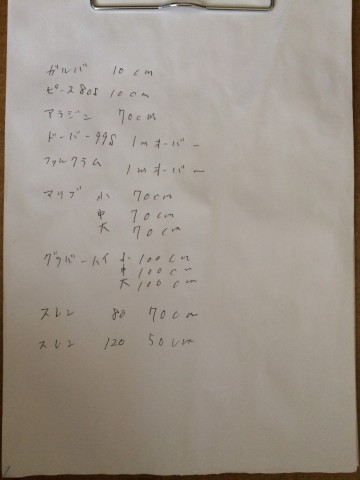 ガルバ 10cm
ピース80S 10cm
アラジン 70cm
ドーバー99S 1mオーバー
ファルクラム 1mオーバー
マリブ 小 70cm
中 70cm
大 70cm
グラバーハイ 小 100cm
中 100cm
大 100cm
スレン 80 70cm
スレン 120 50cm